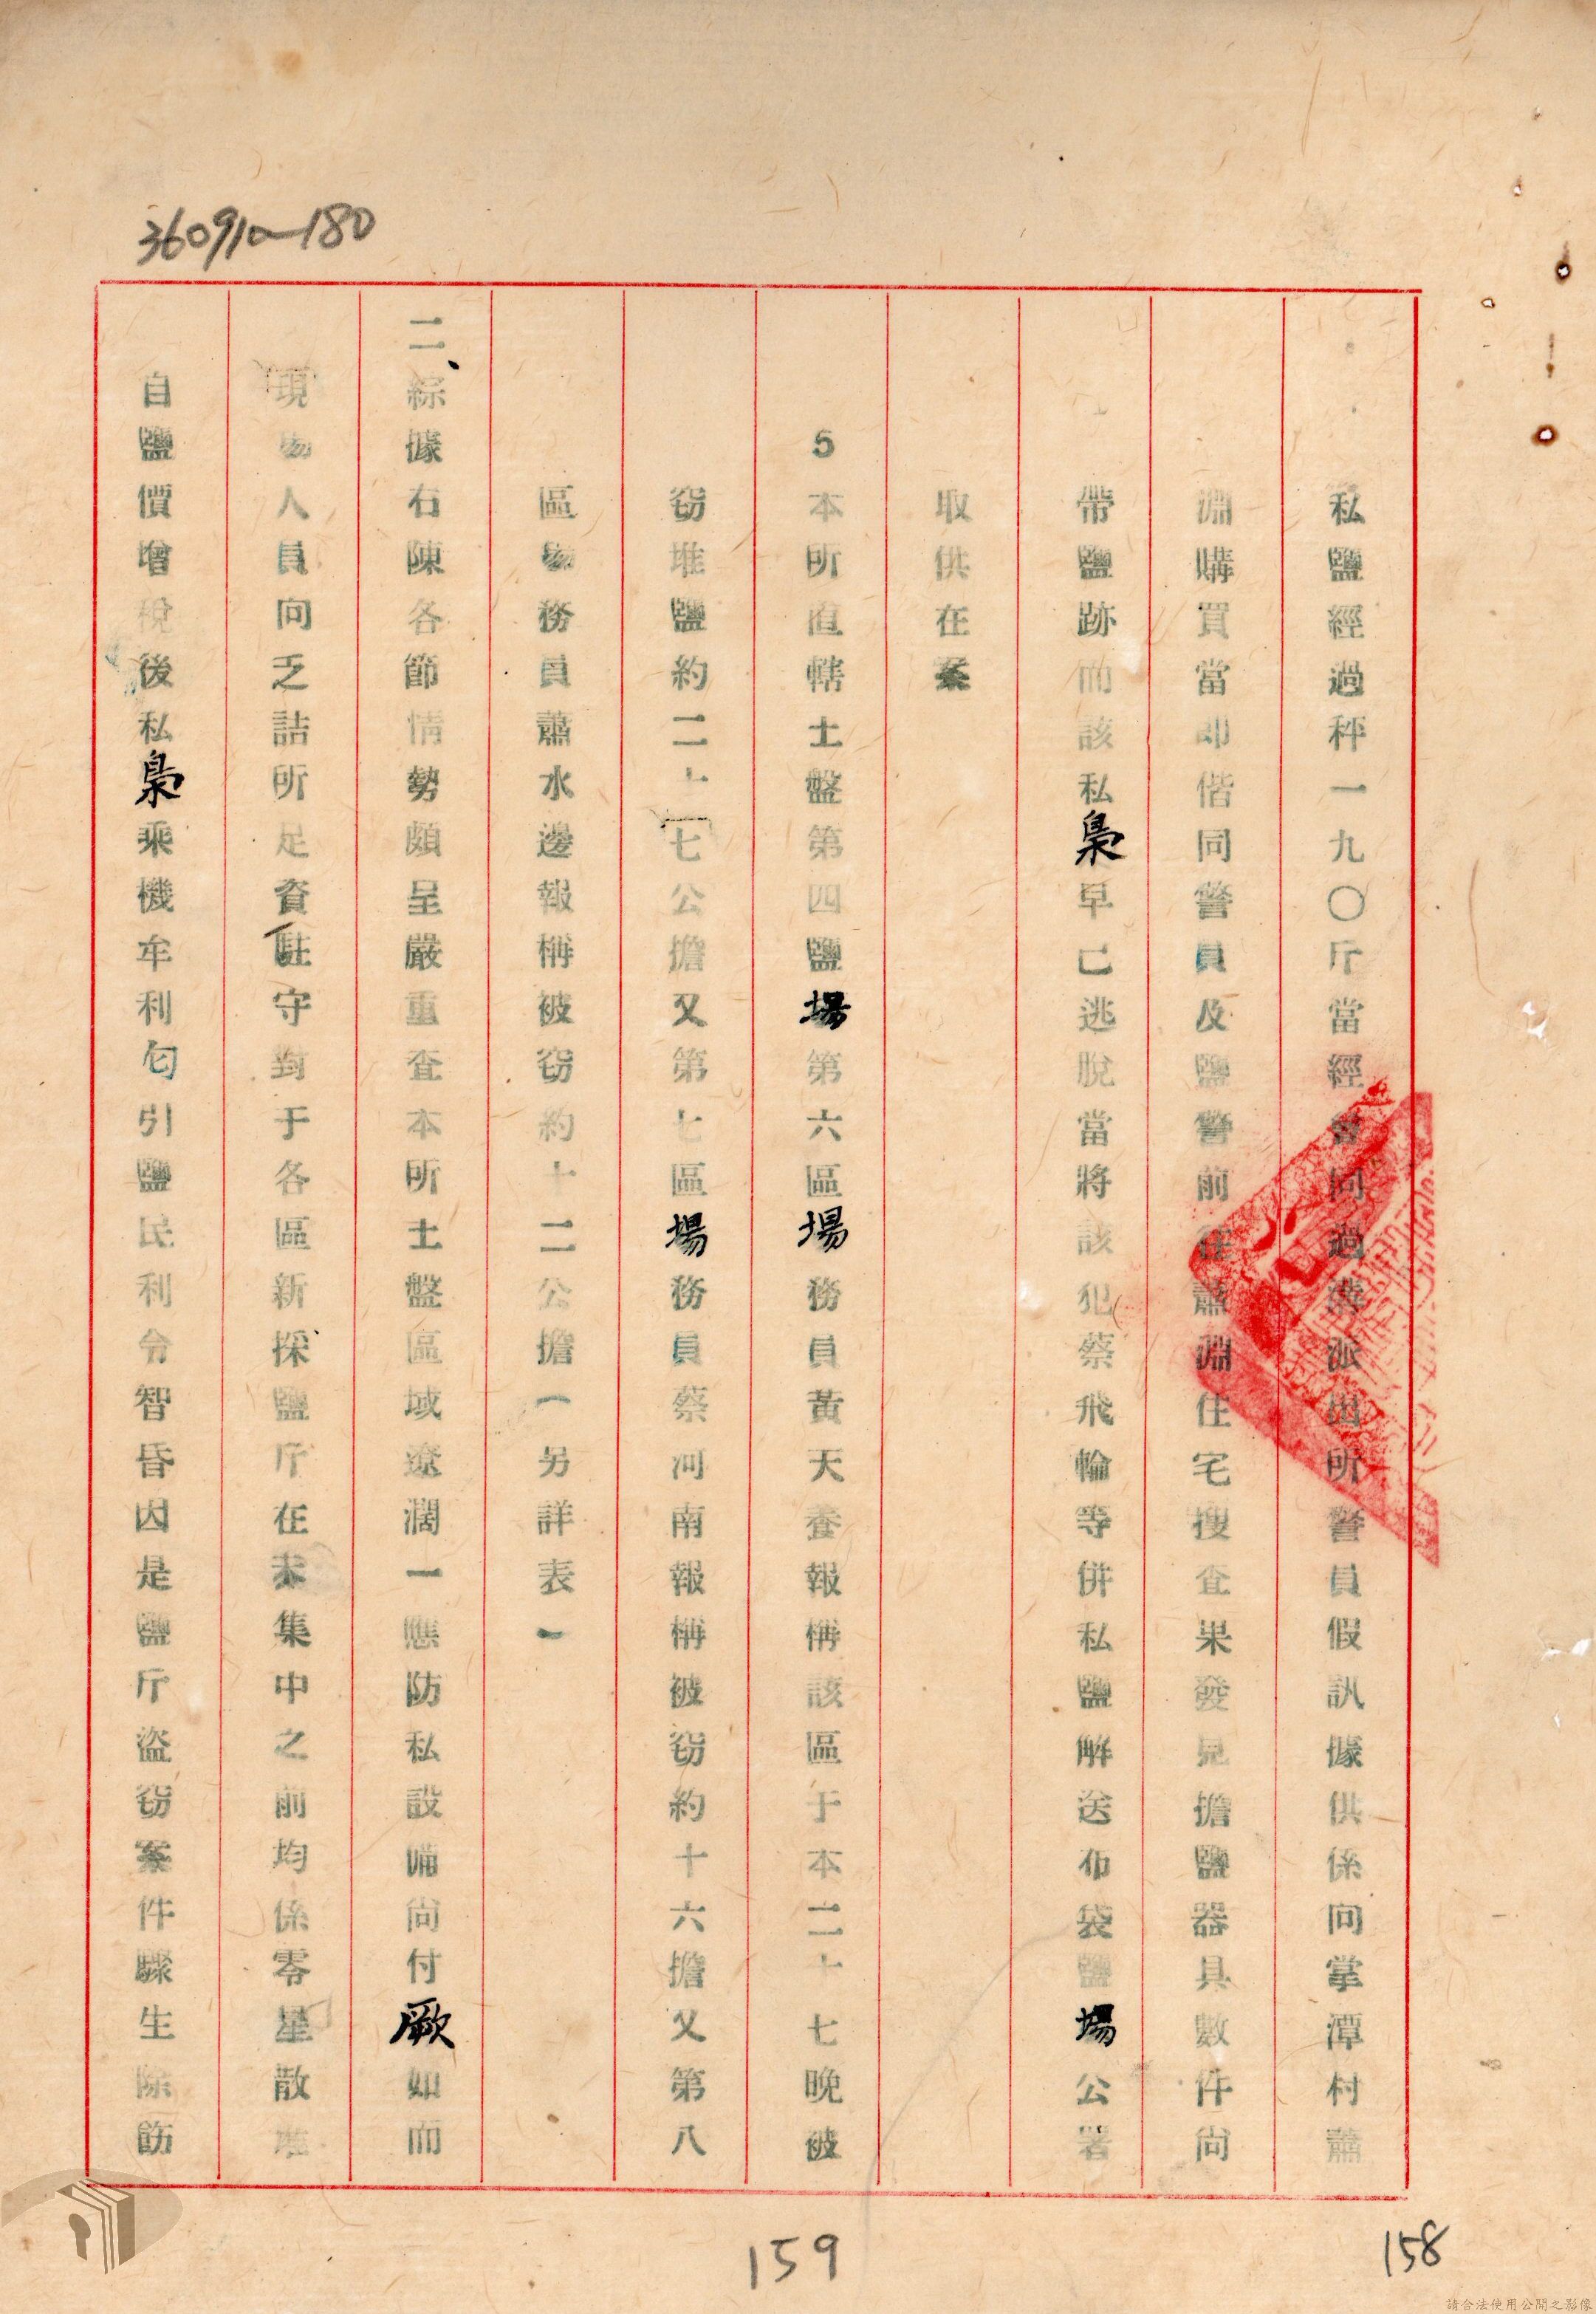 360910-180
私鹽經過秤一九〇斤當經會同過溝派出所警員假訊據供係向掌潭村蕭
淵購買當即偕同警員及鹽警前往蕭淵住宅搜查果發見擔鹽器具數件尚
帶鹽跡而該私梟早已逃脫當將該犯蔡飛輪等併私鹽解送布袋鹽場公署
取供在案
5本所直轄土盤第四鹽場第六區場務員黃天養報稱該區于本二十七晚被
窃堆鹽約二十七公擔又第七區場務員蔡河南報稱被窃約十六擔又第八
區場務員蕭水邊報稱被窃約十二公擔(另詳表)
二、綜據右陳各節情勢頗呈嚴重查本所土盤區域遼濶一應防私設備尚付厥如而
現場人員向乏詰所足資駐守對于各區新採鹽斤在未集中之前均係零星散堆
自鹽價增稅後私梟乘機牟利勾引鹽民利令智昏因是鹽斤盜窃案件驟生除飭
159
158
請合法使用公開之影像